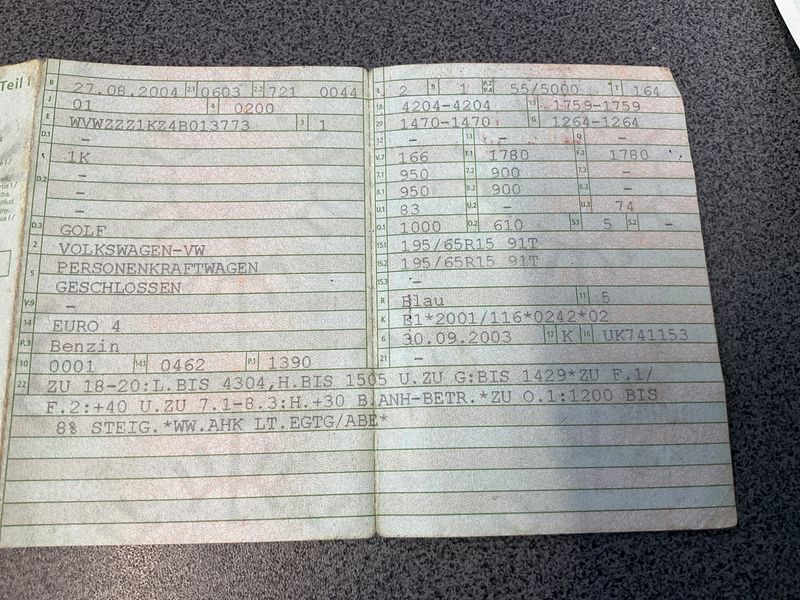 Teil I
B 27.08.2004 2.1 0603 2.2 721 0044
J 01 4 0200
E WVWZZZ1KZ4B013773 3 1
D.1 –
1K
D.2 –
–
D.3 GOLF
2 VOLKSWAGEN-VW
5 PERSONENKRAFTWAGEN
GESCHLOSSEN
V.9 –
14 EURO 4
P.3 Benzin
10 0001 14.1 0462 P.1 1390
22 ZU 18-20:L.BIS 4304,H.BIS 1505 U.ZU G:BIS 1429*ZU F.1/
F.2:+40 U.ZU 7.1-8.3:H.+30 B.ANH-BETR.*ZU O.1:1200 BIS
8% STEIG.*WW.AHK LT.EGTG/ABE*
L 2 9 1 P.2 P.4 55/5000 T 164
18 4204-4204 19 1759-1759
20 1470-1470 G 1264-1264
12 – 13 – Q –
V.7 166 F.1 1780 F.2 1780
7.1 950 7.2 900 7.3 –
8.1 950 8.2 900 8.3 –
U.1 83 U.2 – U.3 74
O.1 1000 O.2 610 S.1 5 S.2 –
15.1 195/65R15 91T
15.2 195/65R15 91T
15.3 –
R Blau 11 5
K E1*2001/116*0242*02
6 30.09.2003 17 K 16 UK741153
21 –